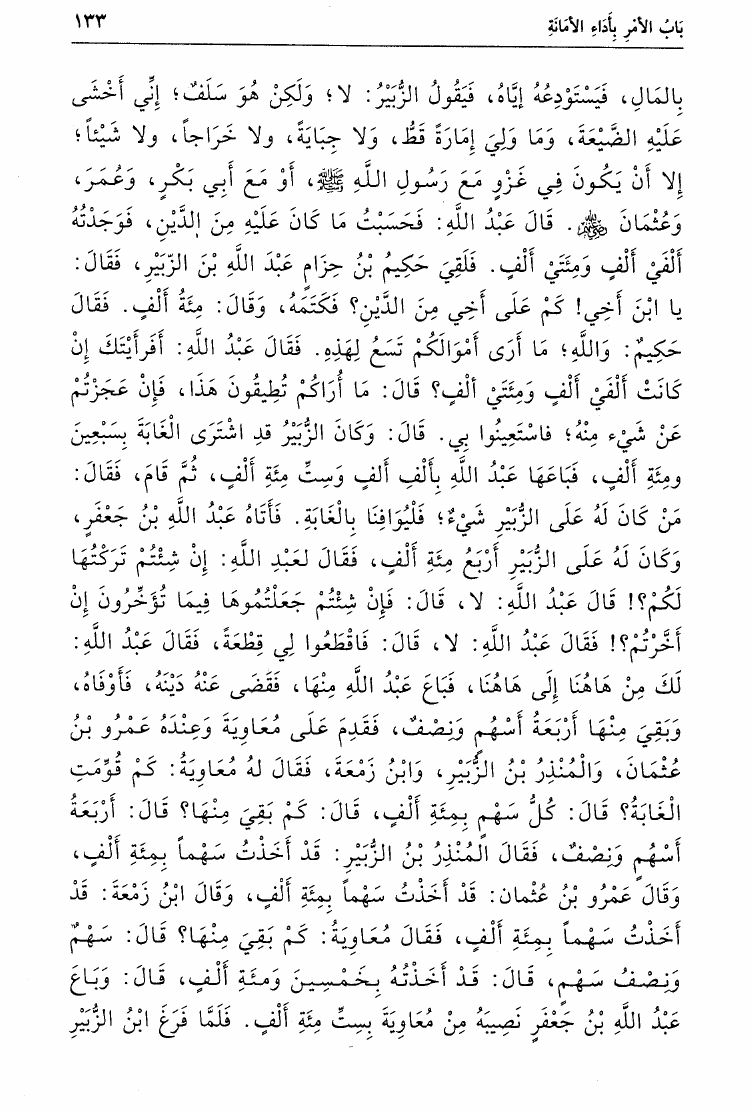 بَابُ الأمْرِ بِأَدَاءِ الأمَانَةِ ١٣٣
بِالمَالِ، فَيَسْتَوْدِعُهُ إيَّاهُ، فَيَقُولُ الزُّبَيْرُ: لا؛ وَلَكِنْ هُوَ سَلَفٌ؛ إنِّي أَخْشَى
عَلَيْهِ الضَّيْعَةَ، وَمَا وَلِيَ إمَارَةً قَطُّ، وَلا جِبَايَةً، ولا خَرَاجاً، ولا شَيْئاً؛
إلا أَنْ يَكُونَ فِي غَزْوٍ مَعَ رَسُولِ اللَّهِ ﷺ، أَوْ مَعَ أَبِي بَكْرٍ، وَعُمَرَ،
وَعُثْمَانَ ﵃. قَالَ عَبْدُ اللَّهِ: فَحَسَبْتُ مَا كَانَ عَلَيْهِ مِنَ الدَّيْنِ، فَوَجَدْتُهُ
أَلْفَيْ أَلْفٍ وَمِئَتَيْ أَلْفٍ. فَلَقِيَ حَكِيمُ بْنُ حِزَامٍ عَبْدَ اللَّهِ بْنَ الزّبَيْرِ، فَقَالَ:
يا ابْنَ أَخِي! كَمْ عَلَى أَخِي مِنَ الدَّيْنِ؟ فَكَتَمَهُ، وَقَالَ: مِئَةُ أَلْفٍ. فَقَالَ
حَكِيمٌ: وَاللَّهِ؛ مَا أَرَى أَمْوَالَكُمْ تَسَعُ لِهَذِهِ. فَقَالَ عَبْدُ اللَّهِ: أَفَرَأَيْتَكَ إنْ
كَانَتْ أَلْفَيْ أَلْفٍ وَمِئَتَيْ ألْفٍ؟ قَالَ: مَا أُرَاكُمْ تُطِيقُونَ هَذَا، فَإنْ عَجَزْتُمْ
عَنْ شَيْءٍ مِنْهُ؛ فاسْتَعِينُوا بِي. قَالَ: وَكَانَ الزُّبَيْرُ قدِ اشْتَرَى الْغَابَةَ بِسَبْعِينَ
ومِئَةِ أَلْفٍ، فَبَاعَهَا عَبْدُ اللَّهِ بِأَلْفِ ألفٍ وَسِتِّ مِئَةِ أَلْفٍ، ثُمَّ قَامَ، فَقَالَ:
مَنْ كَانَ لَهُ عَلَى الزُّبَيْرِ شَيْءٌ؛ فَلْيُوَافِنَا بِالْغَابَةِ. فَأَتَاهُ عَبْدُ اللَّهِ بْنُ جَعْفَرٍ،
وَكَانَ لَهُ عَلَى الزُّبَيْرِ أَرْبَعُ مِئَةِ أَلْفٍ، فَقَالَ لعَبْدِ اللَّهِ: إنْ شِئْتُمْ تَرَكْتُهَا
لَكُمْ؟! قَالَ عَبْدُ اللَّهِ: لا، قَالَ: فَإنْ شِئْتُمْ جَعَلْتُمُوهَا فِيمَا تُؤَخِّرُونَ إنْ
أَخَّرْتُمْ؟! فَقَالَ عَبْدُ اللَّهِ: لا، قَالَ: فَاقْطَعُوا لِي قِطْعَةً، فَقَالَ عَبْدُ اللَّهِ:
لَكَ مِنْ هَاهُنَا إلَى هَاهُنَا، فَبَاعَ عَبْدُ اللَّهِ مِنْهَا، فَقَضَى عَنْهُ دَيْنَهُ، فَأَوْفَاهُ،
وَبَقِيَ مِنْهَا أَرْبَعَةُ أَسْهُمٍ وَنِصْفٌ، فَقَدِمَ عَلَى مُعَاوِيَةَ وَعِنْدَهُ عَمْرُو بْنُ
عُثْمَانَ، وَالْمُنْذِرُ بْنُ الزُّبَيْرِ، وَابْنُ زَمْعَةَ، فَقَالَ لهُ مُعَاوِيَةُ: كَمْ قُوِّمَتِ
الْغَابَةُ؟ قَالَ: كُلُّ سَهْمٍ بِمِئَةِ أَلْفٍ، قَالَ: كَمْ بَقِيَ مِنْهَا؟ قَالَ: أَرْبَعَةُ
أَسْهُمٍ وَنِصْفٌ، فَقَالَ الْمُنْذِرُ بْنُ الزُّبَيْرِ: قَدْ أَخَذْتُ سَهْماً بِمِئَةِ أَلْفٍ،
وَقَالَ عَمْرُو بْنُ عُثْمان: قَدْ أَخَذْتُ سَهْماً بِمِئَةِ أَلْفٍ، وَقَالَ ابْنُ زَمْعَةَ: قَدْ
أَخَذْتُ سَهْماً بِمِئَةِ أَلْفٍ، فَقَالَ مُعَاوِيَةُ: كَمْ بَقِيَ مِنْهَا؟ قَالَ: سَهْمٌ
وَنِصْفُ سَهْمٍ، قَالَ: قَدْ أَخَذْتُهُ بِخَمْسِينَ وَمئَةِ أَلْفٍ، قَالَ: وَبَاعَ
عَبْدُ اللَّهِ بْنُ جَعْفَرٍ نَصِيبَهُ مِنْ مُعَاوِيَةَ بِسِتِّ مِئَةِ أَلْفٍ. فَلَمَّا فَرَغَ ابْنُ الزُّبَيْرِ